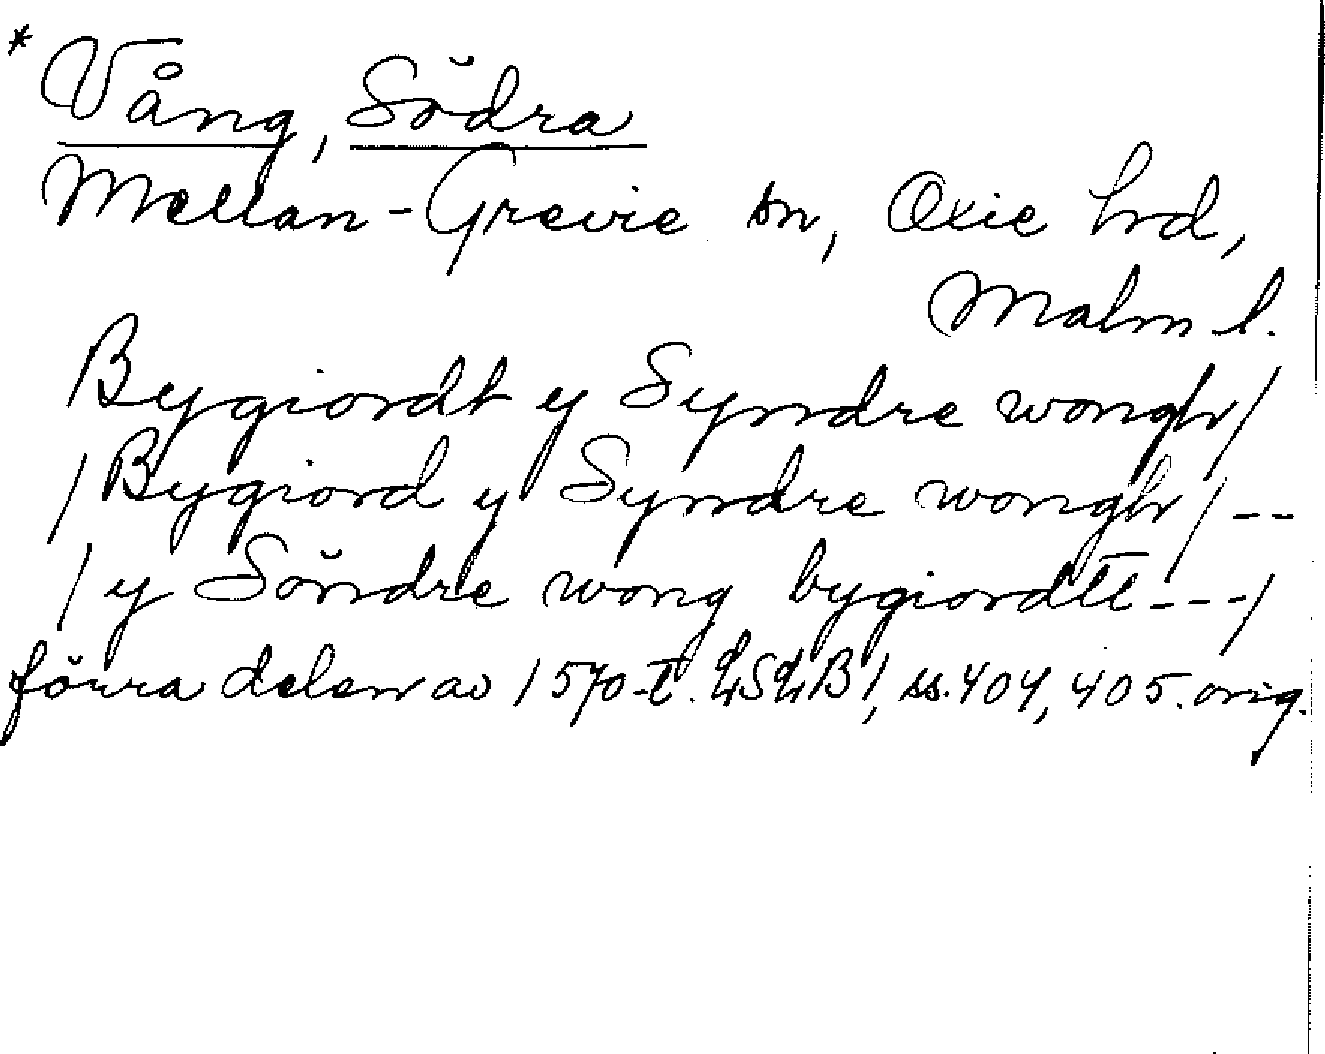 * Vång, Södra
Mellan-Grevie sn, Oxie hrd,
Malm l.
Bygiordt y Syndre wongh/
/Bygiord y Syndre wongh/--
/y Söndre wong bygiordtt---/
förra delen av 1570-t. LSLB1, ss.404, 405. orig.